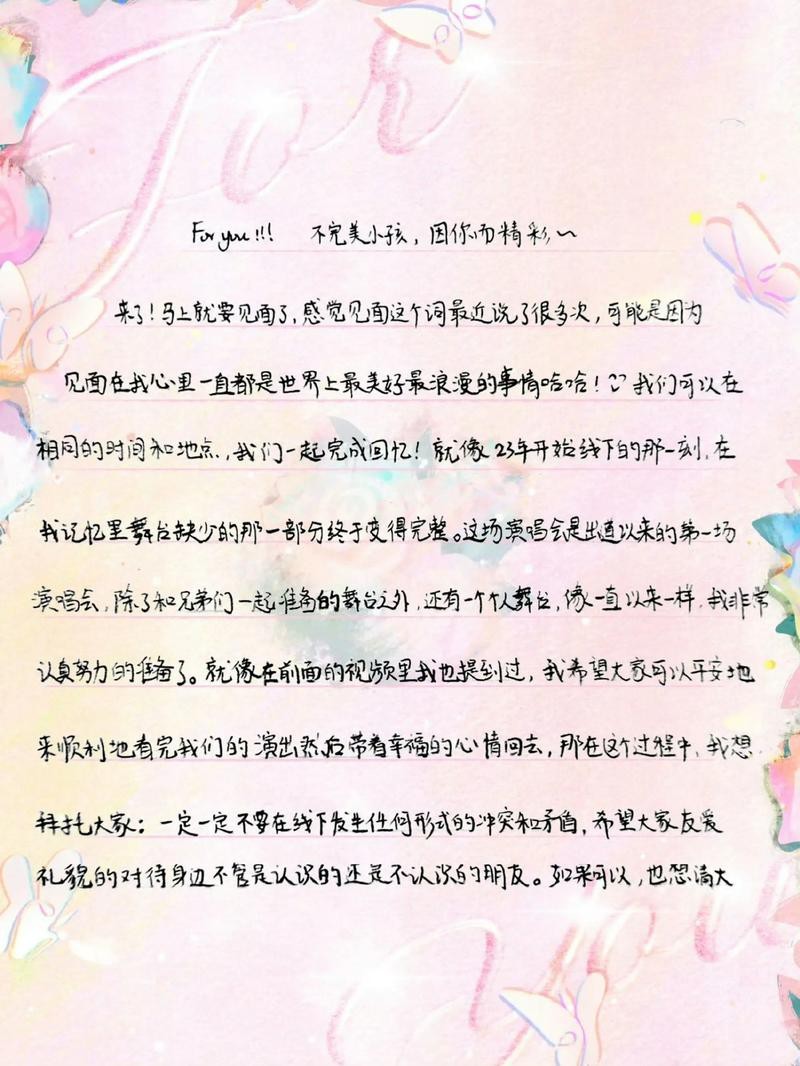 For you!!! 不完美小孩，因你而精彩～
来了！马上就要见面了，感觉见面这个词最近说了很多次，可能是因为
见面在我心里一直都是世界上最美好最浪漫的事情哈哈！我们可以在
相同的时间和地点，我们一起完成回忆！就像23年开始线下的那一刻，在
我记忆里舞台缺少的那一部分终于变得完整。这场演唱会是出道以来的第一场
演唱会，除了和兄弟们一起准备的舞台之外，还有一个个人舞台，像一直以来一样，我非常
认真努力的准备了。就像在前面的视频里我也提到过，我希望大家可以平安地
来顺利地看完我们的演出然后带着幸福的心情回去，那在这个过程中，我想
拜托大家：一定一定不要在线下发生任何形式的冲突和矛盾，希望大家友爱
礼貌的对待身边不管是认识的还是不认识的朋友。如果可以，也想请大
For
You